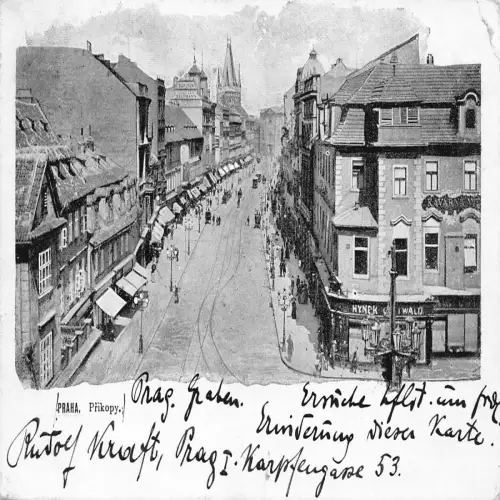 HYNEK
[PRAHA. Příkopy.]
Prag. Graben.
Ersuche höflst. um
Erwiderung dieser Karte.
Rudolf Kraft, Prag I. Karpfengasse 53.